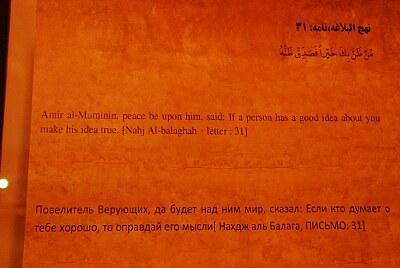 نهج البلاغه،نامه: ۳۱
مَنْ ظَنَّ بِكَ خَيْراً فَصَدِّقْ ظَنَّهُ
Amir al-Muminin, peace be upon him, said: If a person has a good idea about you
make his idea true. [Nahj Al-balaghah - letter : 31]
Повелитель Верующих, да будет над ним мир, сказал: Если кто думает о
тебе хорошо, то оправдай его мысли[ Нахдж аль Балага, ПИСЬМО: 31]